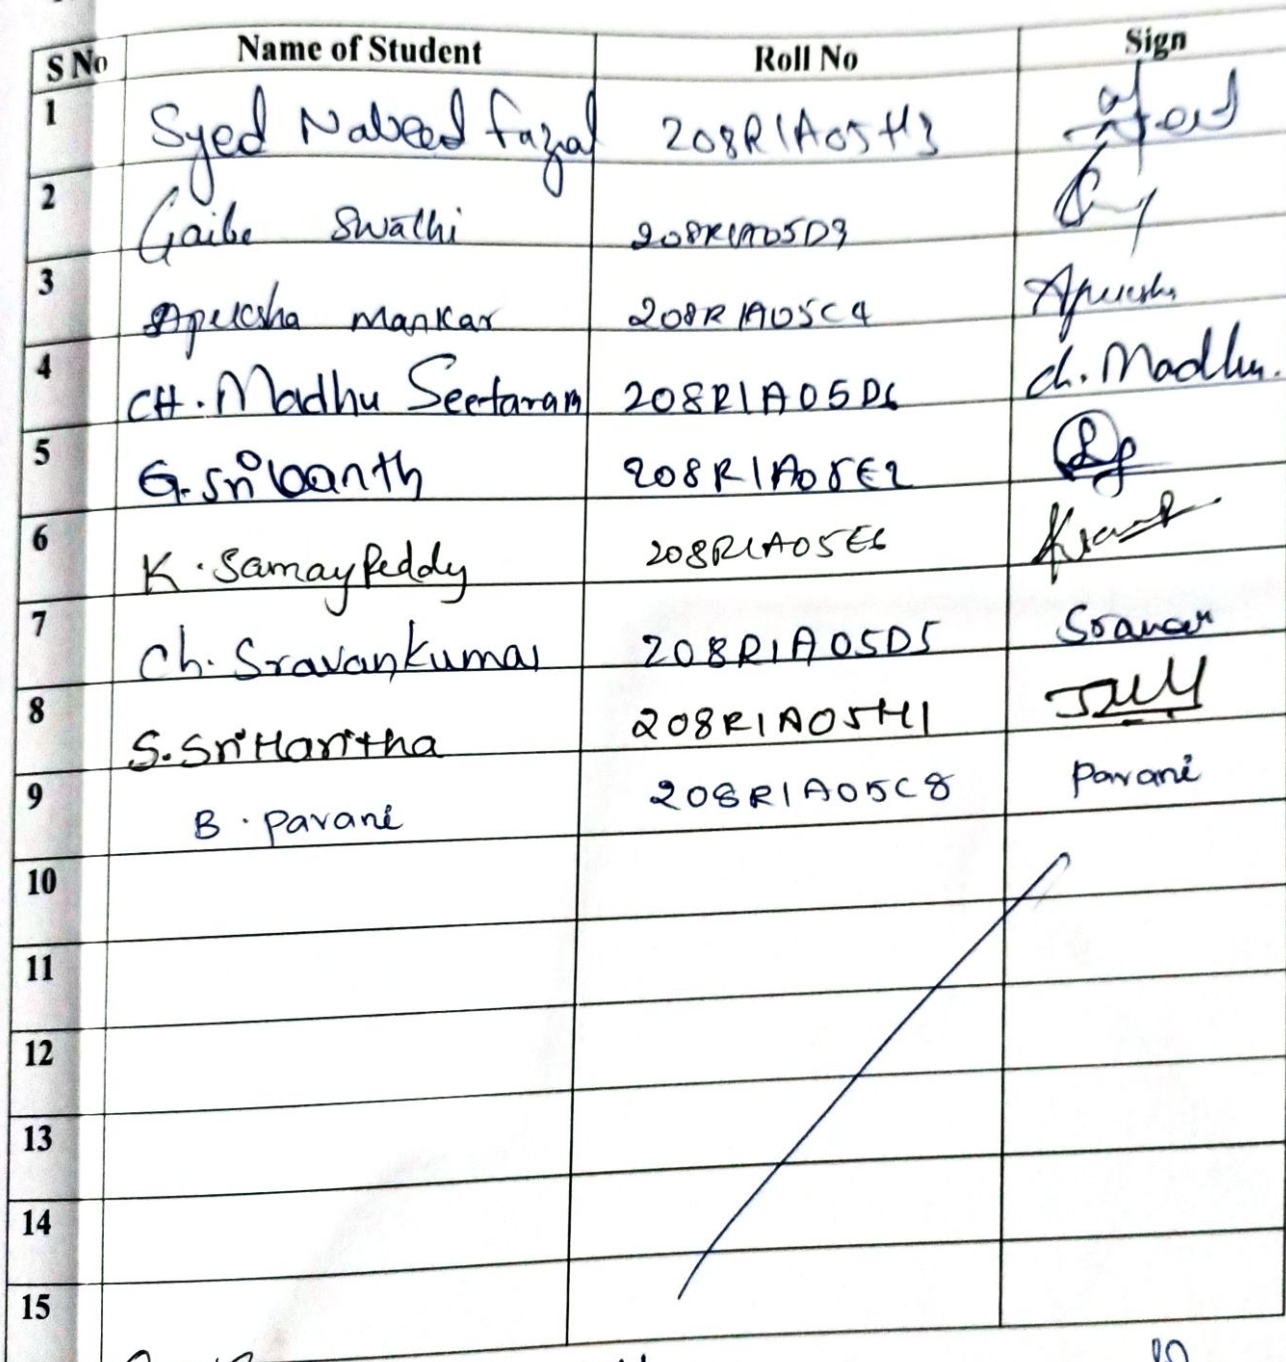 S No Name of Student Roll No Sign
1 Syed Nabeed Fazal 208R1A05H3
2 Gaibe Swathi 208R1A05D9
3 Apeksha Mankar 208R1A05C4 Apeksha
4 CH. Madhu Seetaram 208R1A05D6 ch. Madhu.
5 G. Srikanth 208R1A05E2
6 K. Samay Reddy 208R1A05E6
7 Ch. Sravan kumar 208R1A05D5 Sravan
8 S. Sri Haritha 208R1A05H1
9 B. pavani 208R1A05C8 pavani
10
11
12
13
14
15